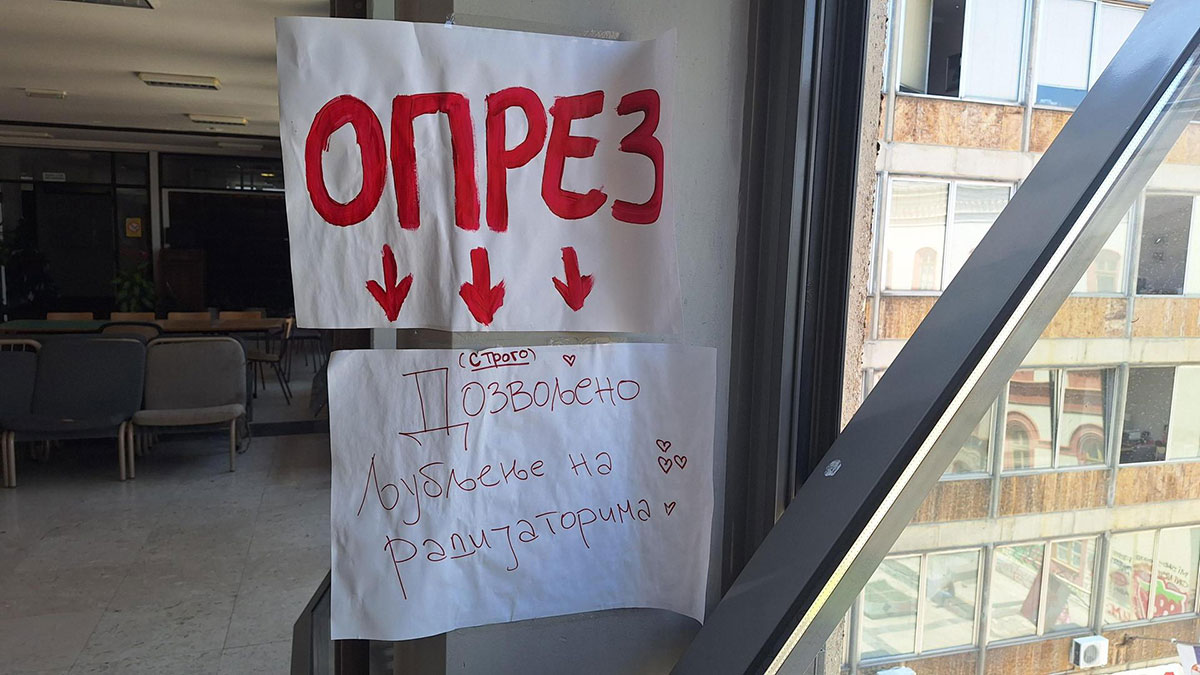 ОПРЕЗ
(строго)
Дозвољено
Љубљење на
радијаторима